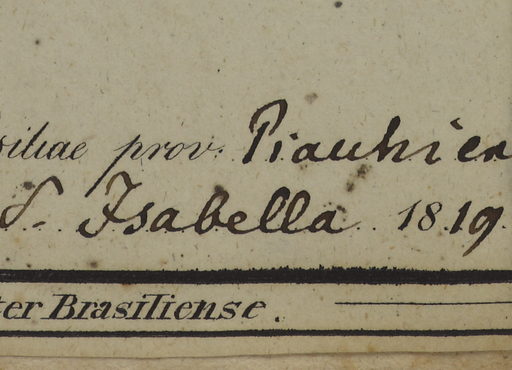 siliae prov. Piauhien
S. Isabella 1819.
ter Brasiliense.